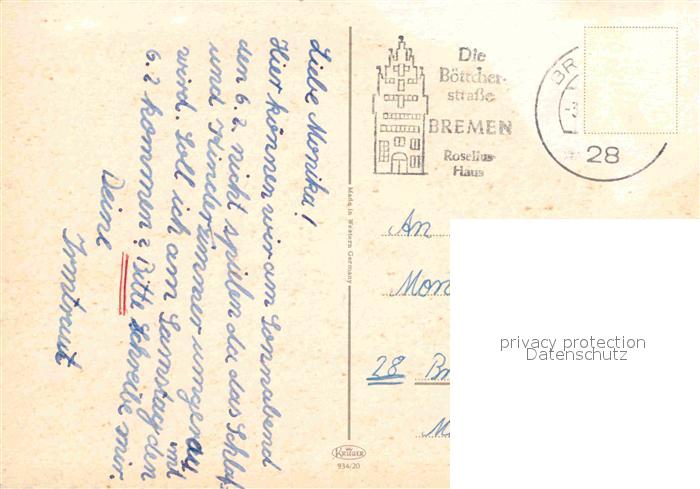 Liebe Monika!
Hier können wir am Sonnabend
den 6.2. nicht spielen da das Schlaf-
und Kinderzimmer umgeräu
mt
wird. Soll ich am Samstag den
6.2 kommen? Bitte schreibe mir.
Deine
Irmtraut
Made in Western Germany
KRÜGER
934/20
Die
Böttcher-
straße
BREMEN
Roselius-
Haus
BR
28
An
Mon
28 Br
privacy protection
Datenschutz